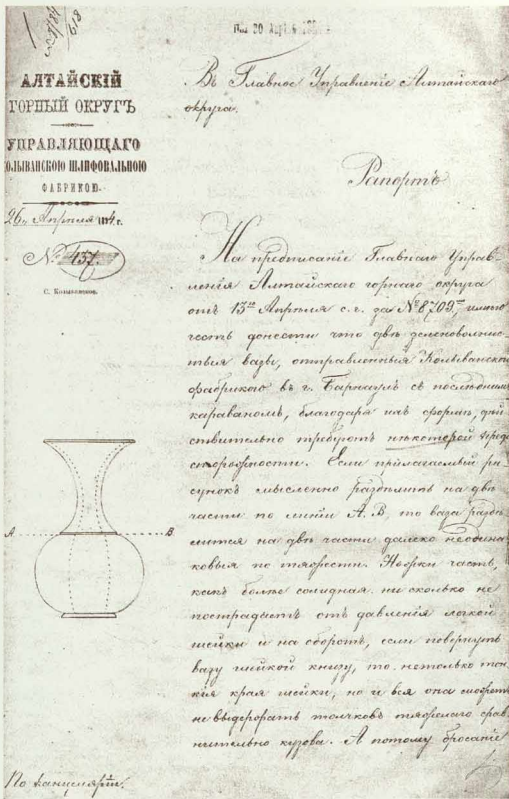 АЛТАЙСКІЙ
ГОРНЫЙ ОКРУГЪ
УПРАВЛЯЮЩАГО
КОЛЫВАНСКОЮ ШЛИФОВАЛЬНОЮ
ФАБРИКОЮ.
26 Апрѣля г.
№ 437.
С. Колыванское.
А В
По канцеляріи.
Въ Главное Управленіе Алтайскаго
округа.
Рапортъ
На предписаніе Главнаго Управ-
ленія Алтайскаго горнаго округа
отъ 13го Апрѣля с.г. за № 8709, имѣю
честь донести что двѣ зеленоволнис-
тыя вазы, отправленныя Колыванской
фабрикою въ г. Барнаулъ съ послѣднимъ
караваномъ, благодаря ихъ формѣ, дѣй
ствительно требуютъ нѣкоторой предо
сторожности. Если прилагаемый ри-
сунокъ мысленно раздѣлить на двѣ
части по линіи А.В, то ваза раздѣ
лится на двѣ части далеко неодина
ковыя по тяжести. Нижняя часть,
какъ болѣе солидная ни сколько не
пострадаетъ отъ давленія легкой
шейки и на оборотъ, если повернуть
вазу шейкой книзу, то нетолько тон
кія края шейки, но и вся она можетъ
не выдержать толчковъ тяжелаго срав
нительно кузова. А потому бросаніе